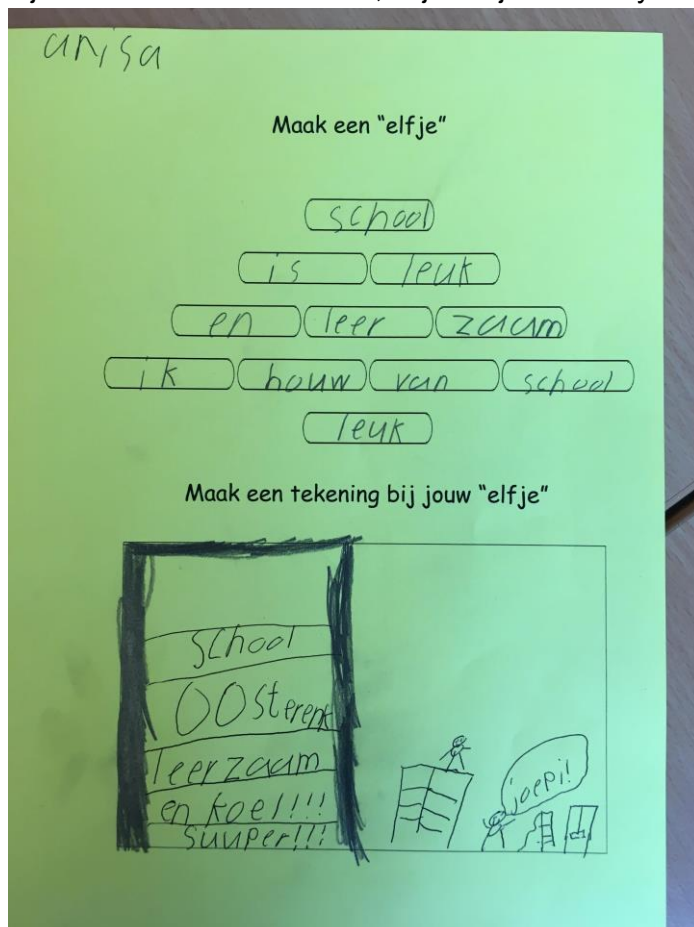 anisa
Maak een “elfje”
school
is leuk
en leer zaam
ik houw van school
leuk
Maak een tekening bij jouw “elfje”
school
OOsterenk
leerzaam
en koel!!!
suuper!!!
joepi!